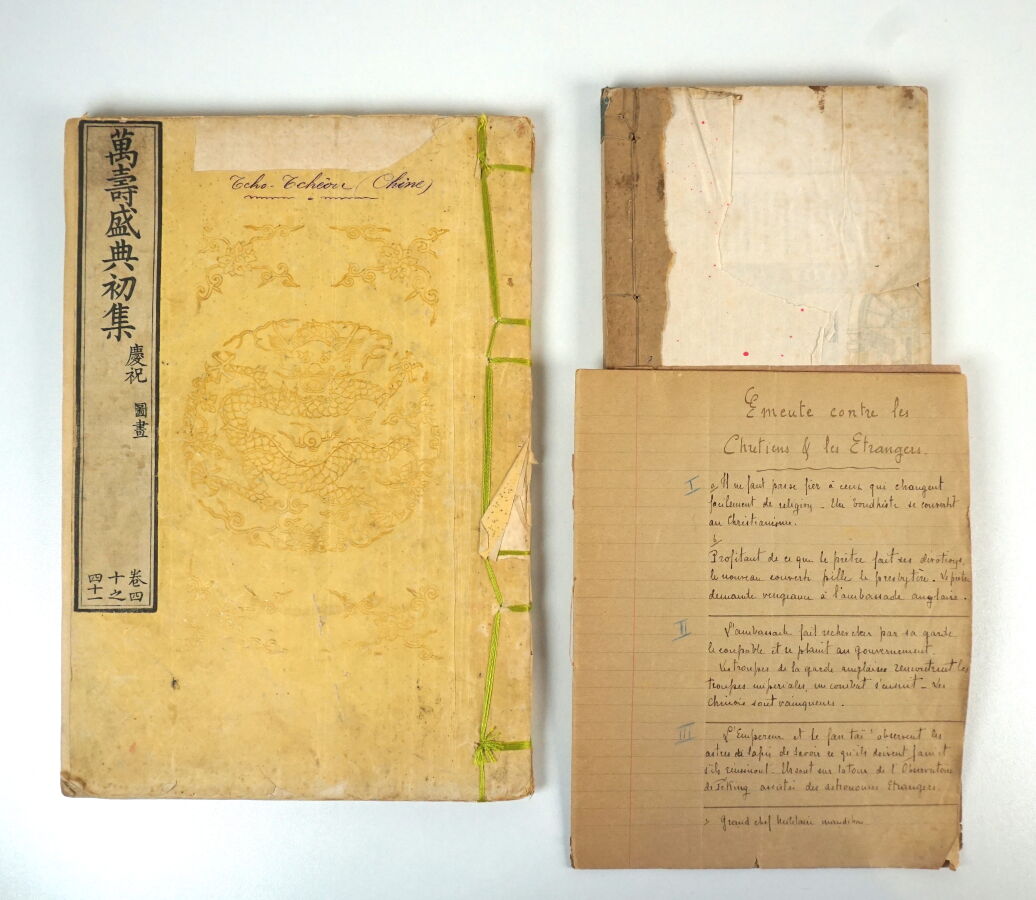 萬壽盛典初集
慶祝 圖畫
卷四
十之
四十一
Tcho-Tchéou (Chine)
Emeute contre les
Chretiens & les Etrangers.
I
a Il ne faut pas se fier à ceux qui changent
facilement de religion - Un boudhiste se convertit
au Christianisme.
b
Profitant de ce que le prêtre fait ses devotions
le nouveau converti pille le presbytère. Le prêtre
demande vengeance à l'ambassade anglaise.
II
L'ambassade fait rechercher par sa garde
le coupable et se plaint au gouvernement.
Les troupes de la garde anglaise rencontrent les
troupes imperiales, un combat s'ensuit - Les
Chinois sont vainqueurs.
III
L'Empereur et le fan taï observent les
astres de savoir ce qu'ils doivent faire et
s'ils reussiront - Ils sont sur la tour de l'Observatoire
de Peking assistés des astronomes Etrangers.
Grand chef